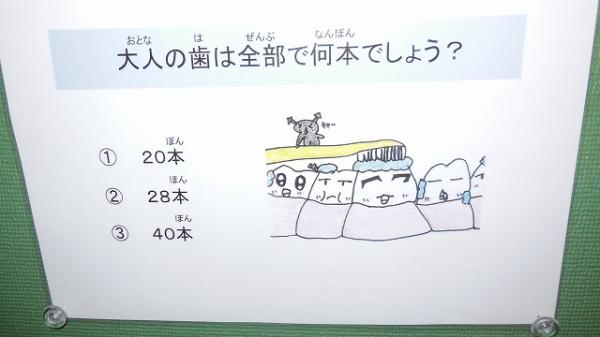 大人の歯は全部で何本でしょう？
おとな は ぜんぶ なんぼん
① 20本
ぽん
② 28本
ほん
③ 40本
ぽん